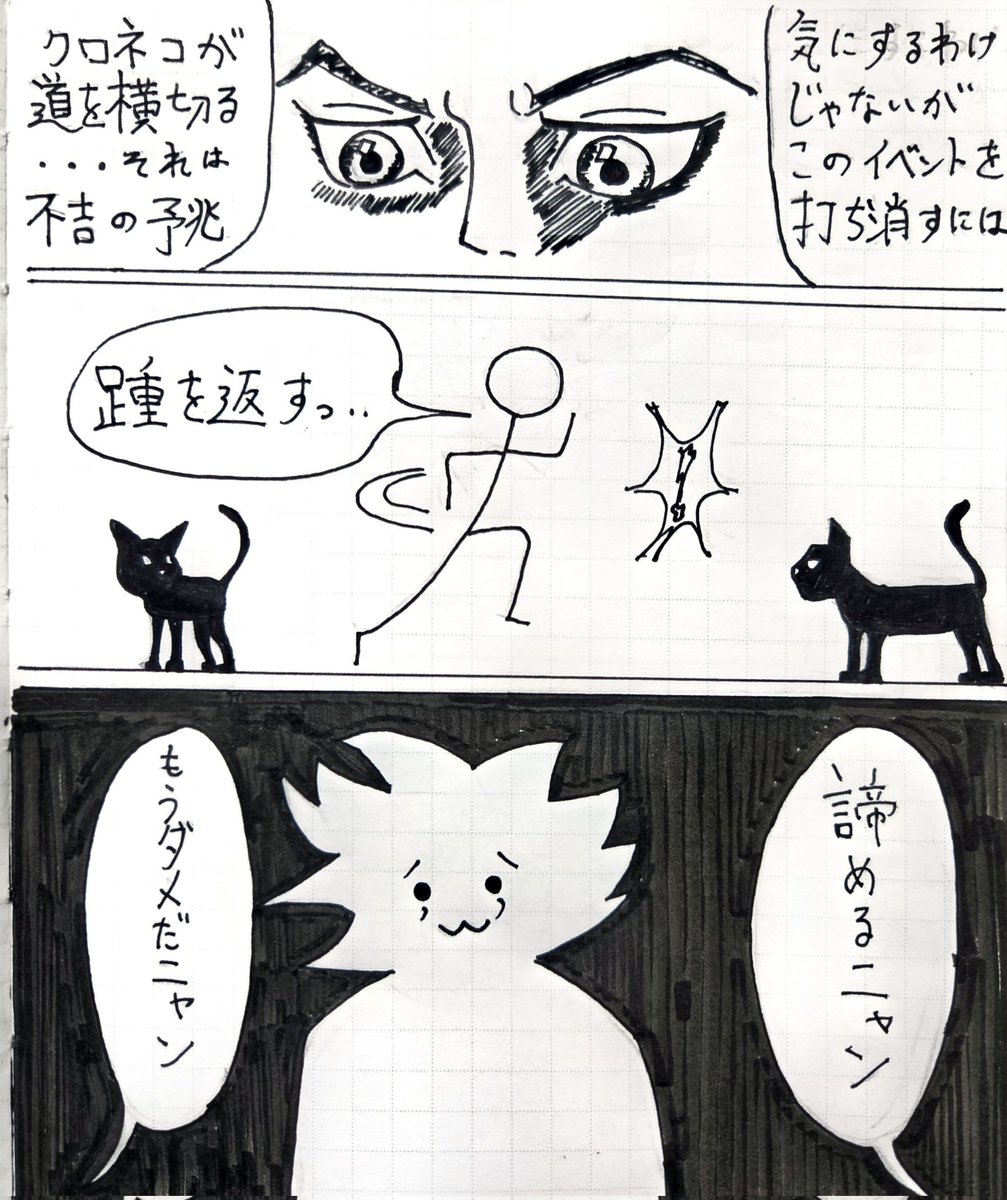 クロネコが
道を横切る
・・・それは
不吉の予兆
気にするわけ
じゃないが
このイベントを
打ち消すには
踵を返すっ‥
!
諦めるニャン
もうダメだニャン